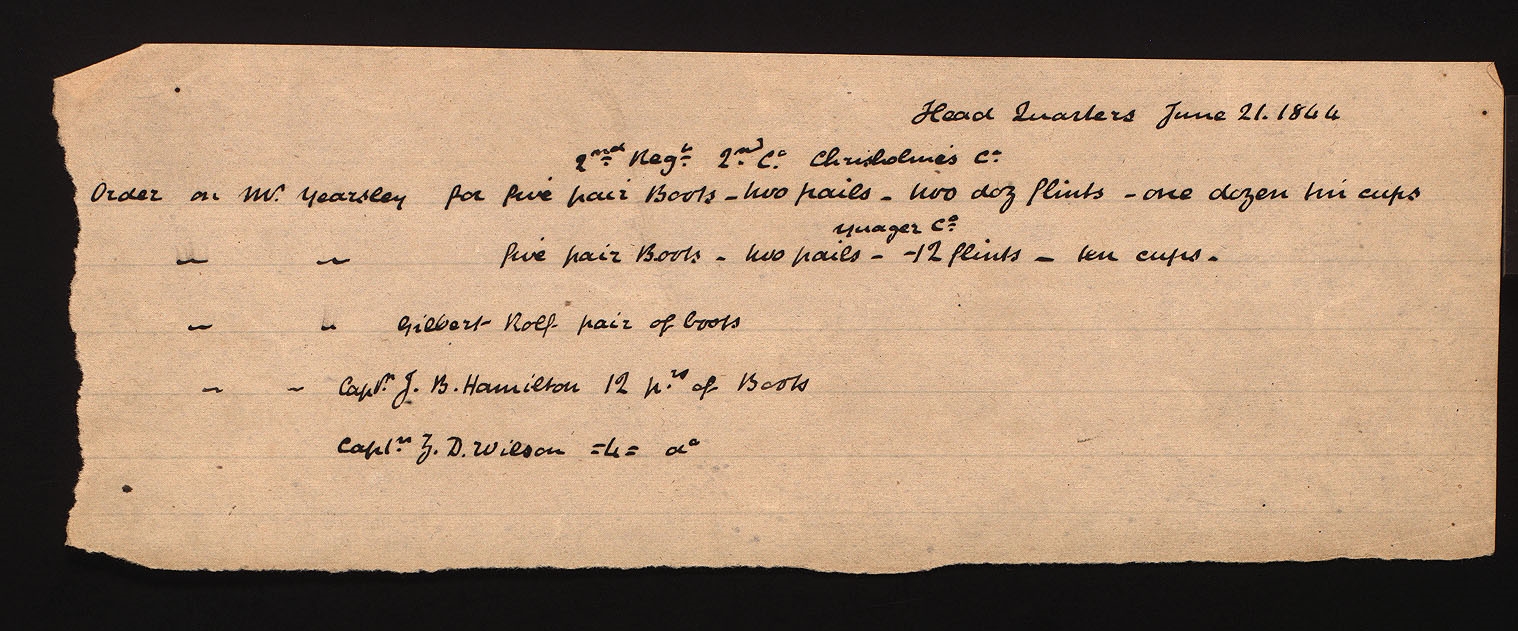 Head Quarters June 21. 1844
2nd Regt 2nd Co Chrisholmes Co
Order on Mr. Yearsley for five pair Boots - two pails - two doz flints - one dozen tin cups
Yuager Co
" " five pair Boots - two pails - -12 flints - ten cups.
" " Gilbert Rolf pair of boots
" " Captn J. B. Hamilton 12 prs of Boots
Captn Z. D. Wilson =4= do